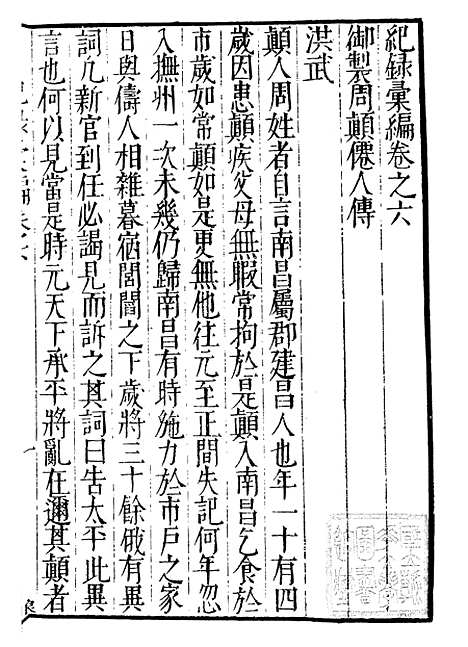 紀錄彙編卷之六
御製周顛僊人傳
洪武
顛人周姓者自言南昌屬郡建昌人也年一十有四
歲因患顛疾父母無暇常拘於是顛入南昌乞食於
市歲如常顛如是更無他往元至正間失記何年忽
入撫州一次未幾仍歸南昌有時施力於市戶之家
日與儔人相雜暮宿閭閻之下歲將三十餘俄有異
詞凡新官到任必謁見而訴之其詞曰告太平此異
言也何以見當是時元天下承平將亂在邇其顛者